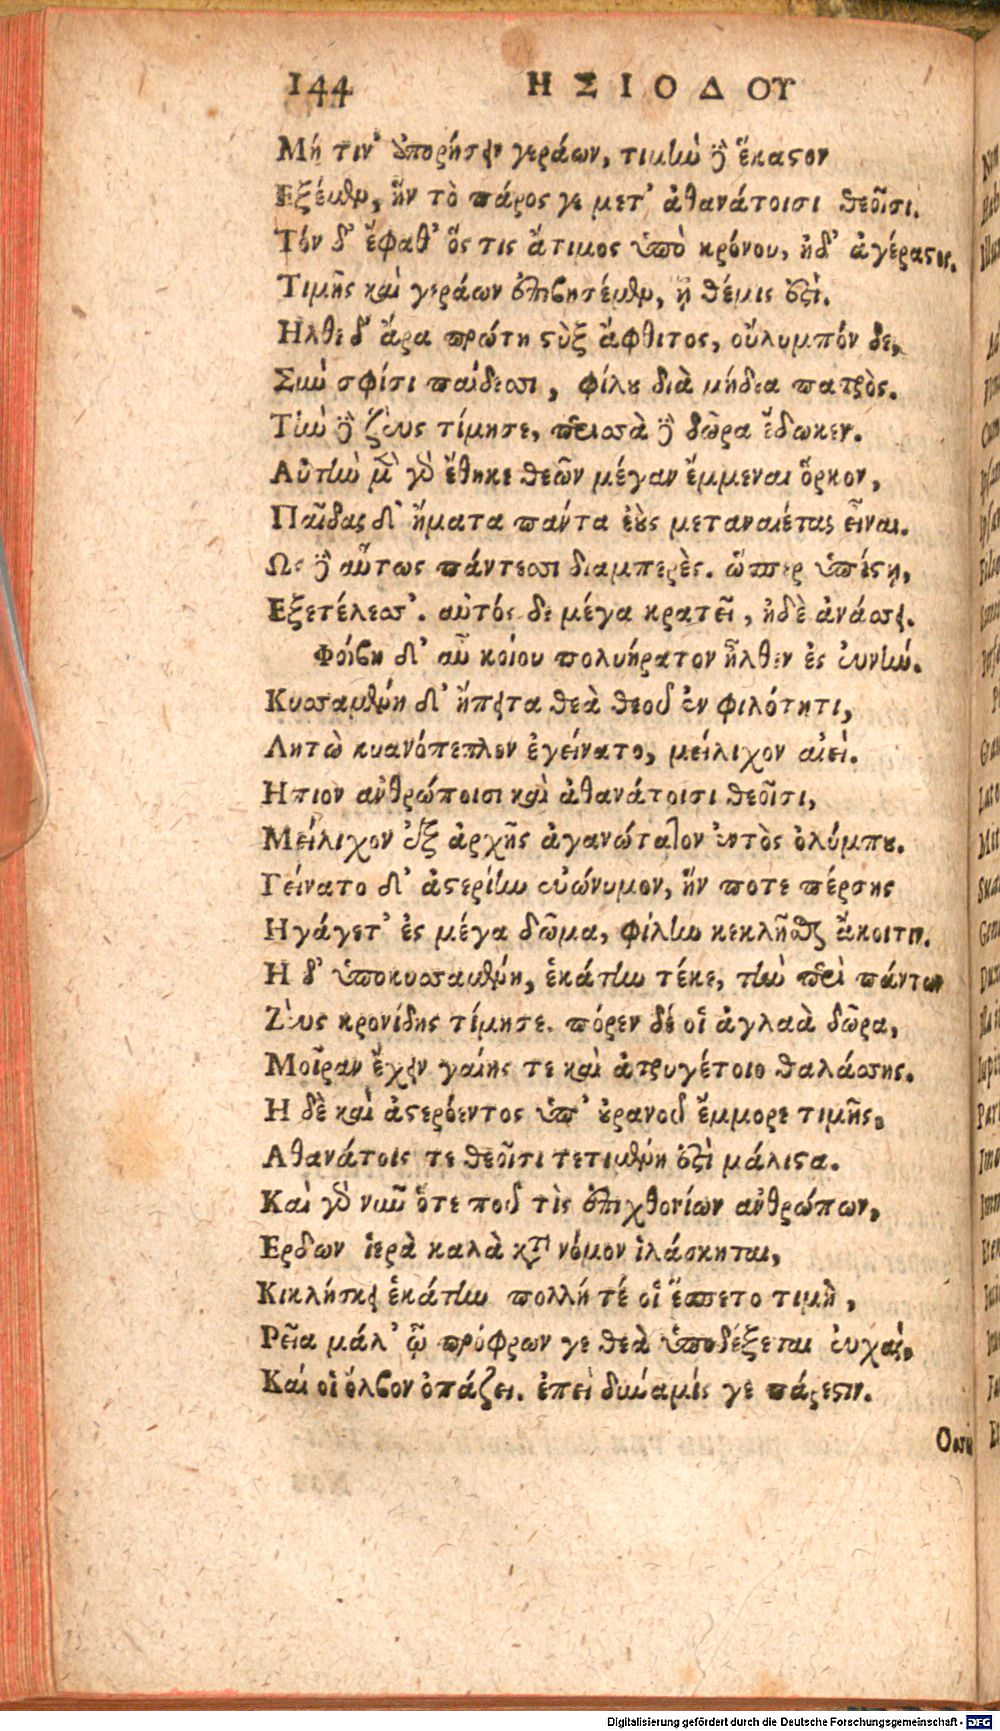 144 ΗΣΙΟΔΟΥ
Μή τιν' ἀποῤῥήσειν γεράων, τιμὴν δὲ ἕκαστον
Εξέμεν, ἣν τὸ πάρος γε μετ' ἀθανάτοισι θεοῖσι.
Τόν δ' ἔφαθ' ὅς τις ἄτιμος ὑπὸ κρόνου, ἠδ' ἀγέραστος,
Τιμῆς καὶ γεράων ἐπιβησέμεν, ᾗ θέμις ἐστί.
Ηλθε δ' ἄρα πρώτη στὺξ ἄφθιτος, οὔλυμπόν δε,
Σὺν σφίσι παίδεσσι, φίλου διὰ μήδεα πατρὸς.
Τὴν δὲ ζεὺς τίμησε, περισσὰ δὲ δῶρα ἔδωκεν.
Αὐτὴν μὲν γὰρ ἔθηκε θεῶν μέγαν ἔμμεναι ὅρκον,
Παῖδας δ' ἤματα πάντα ἑοὺς μεταναιέτας εἶναι.
Ως δὲ αὔτως πάντεσσι διαμπερὲς. ὥσπερ ὑπέστη,
Εξετέλεσσ'. αὐτός δε μέγα κρατεῖ, ἠδὲ ἀνάσσει.
Φοίβη δ' αὖ κοίου πολυήρατον ἦλθεν ἐς εὐνήν.
Κυσσαμένη δ' ἤπειτα θεὰ θεοῦ ἐν φιλότητι,
Λητὼ κυανόπεπλον ἐγείνατο, μείλιχον αἰεί.
Ηπιον ἀνθρώποισι καὶ ἀθανάτοισι θεοῖσι,
Μείλιχον ἐξ ἀρχῆς ἀγανώτατον ἐντὸς ὀλύμπου.
Γείνατο δ' ἀστερίην εὐώνυμον, ἥν ποτε πέρσης
Ηγάγετ' ἐς μέγα δῶμα, φίλην κεκλῆσθαι ἄκοιτιν.
Η δ' ὑποκυσσαμένη, ἑκάτην τέκε, τὴν περὶ πάντων
Ζεὺς κρονίδης τίμησε. πόρεν δέ οἱ ἀγλαὰ δῶρα,
Μοῖραν ἔχειν γαίης τε καὶ ἀτρυγέτοιο θαλάσσης.
Η δὲ καὶ ἀστερόεντος ὑπ' οὐρανοῦ ἔμμορε τιμῆς,
Αθανάτοις τε θεοῖσι τετιμένη ἐστὶ μάλιστα.
Καὶ γὰρ νῦν ὅτε ποῦ τὶς ἐπιχθονίων ἀνθρώπων,
Ερδων ἱερὰ καλὰ κατὰ νόμον ἱλάσκηται,
Κικλήσκει ἑκάτην πολλή τέ οἱ ἕσπετο τιμὴ,
Ρεῖα μάλ' ᾧ πρόφρων γε θεὰ ὑποδέξεται εὐχάς,
Καί οἱ ὄλβον ὀπάζει. ἐπεὶ δύναμίς γε πάρεστιν.
Digitalisierung gefördert durch die Deutsche Forschungsgemeinschaft - DFG